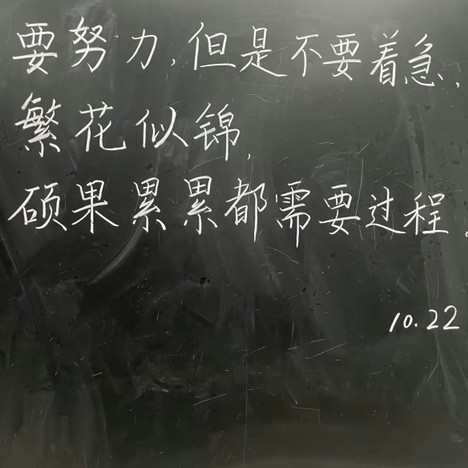 要努力,但是不要着急,
繁花似锦,
硕果累累都需要过程。
10.22